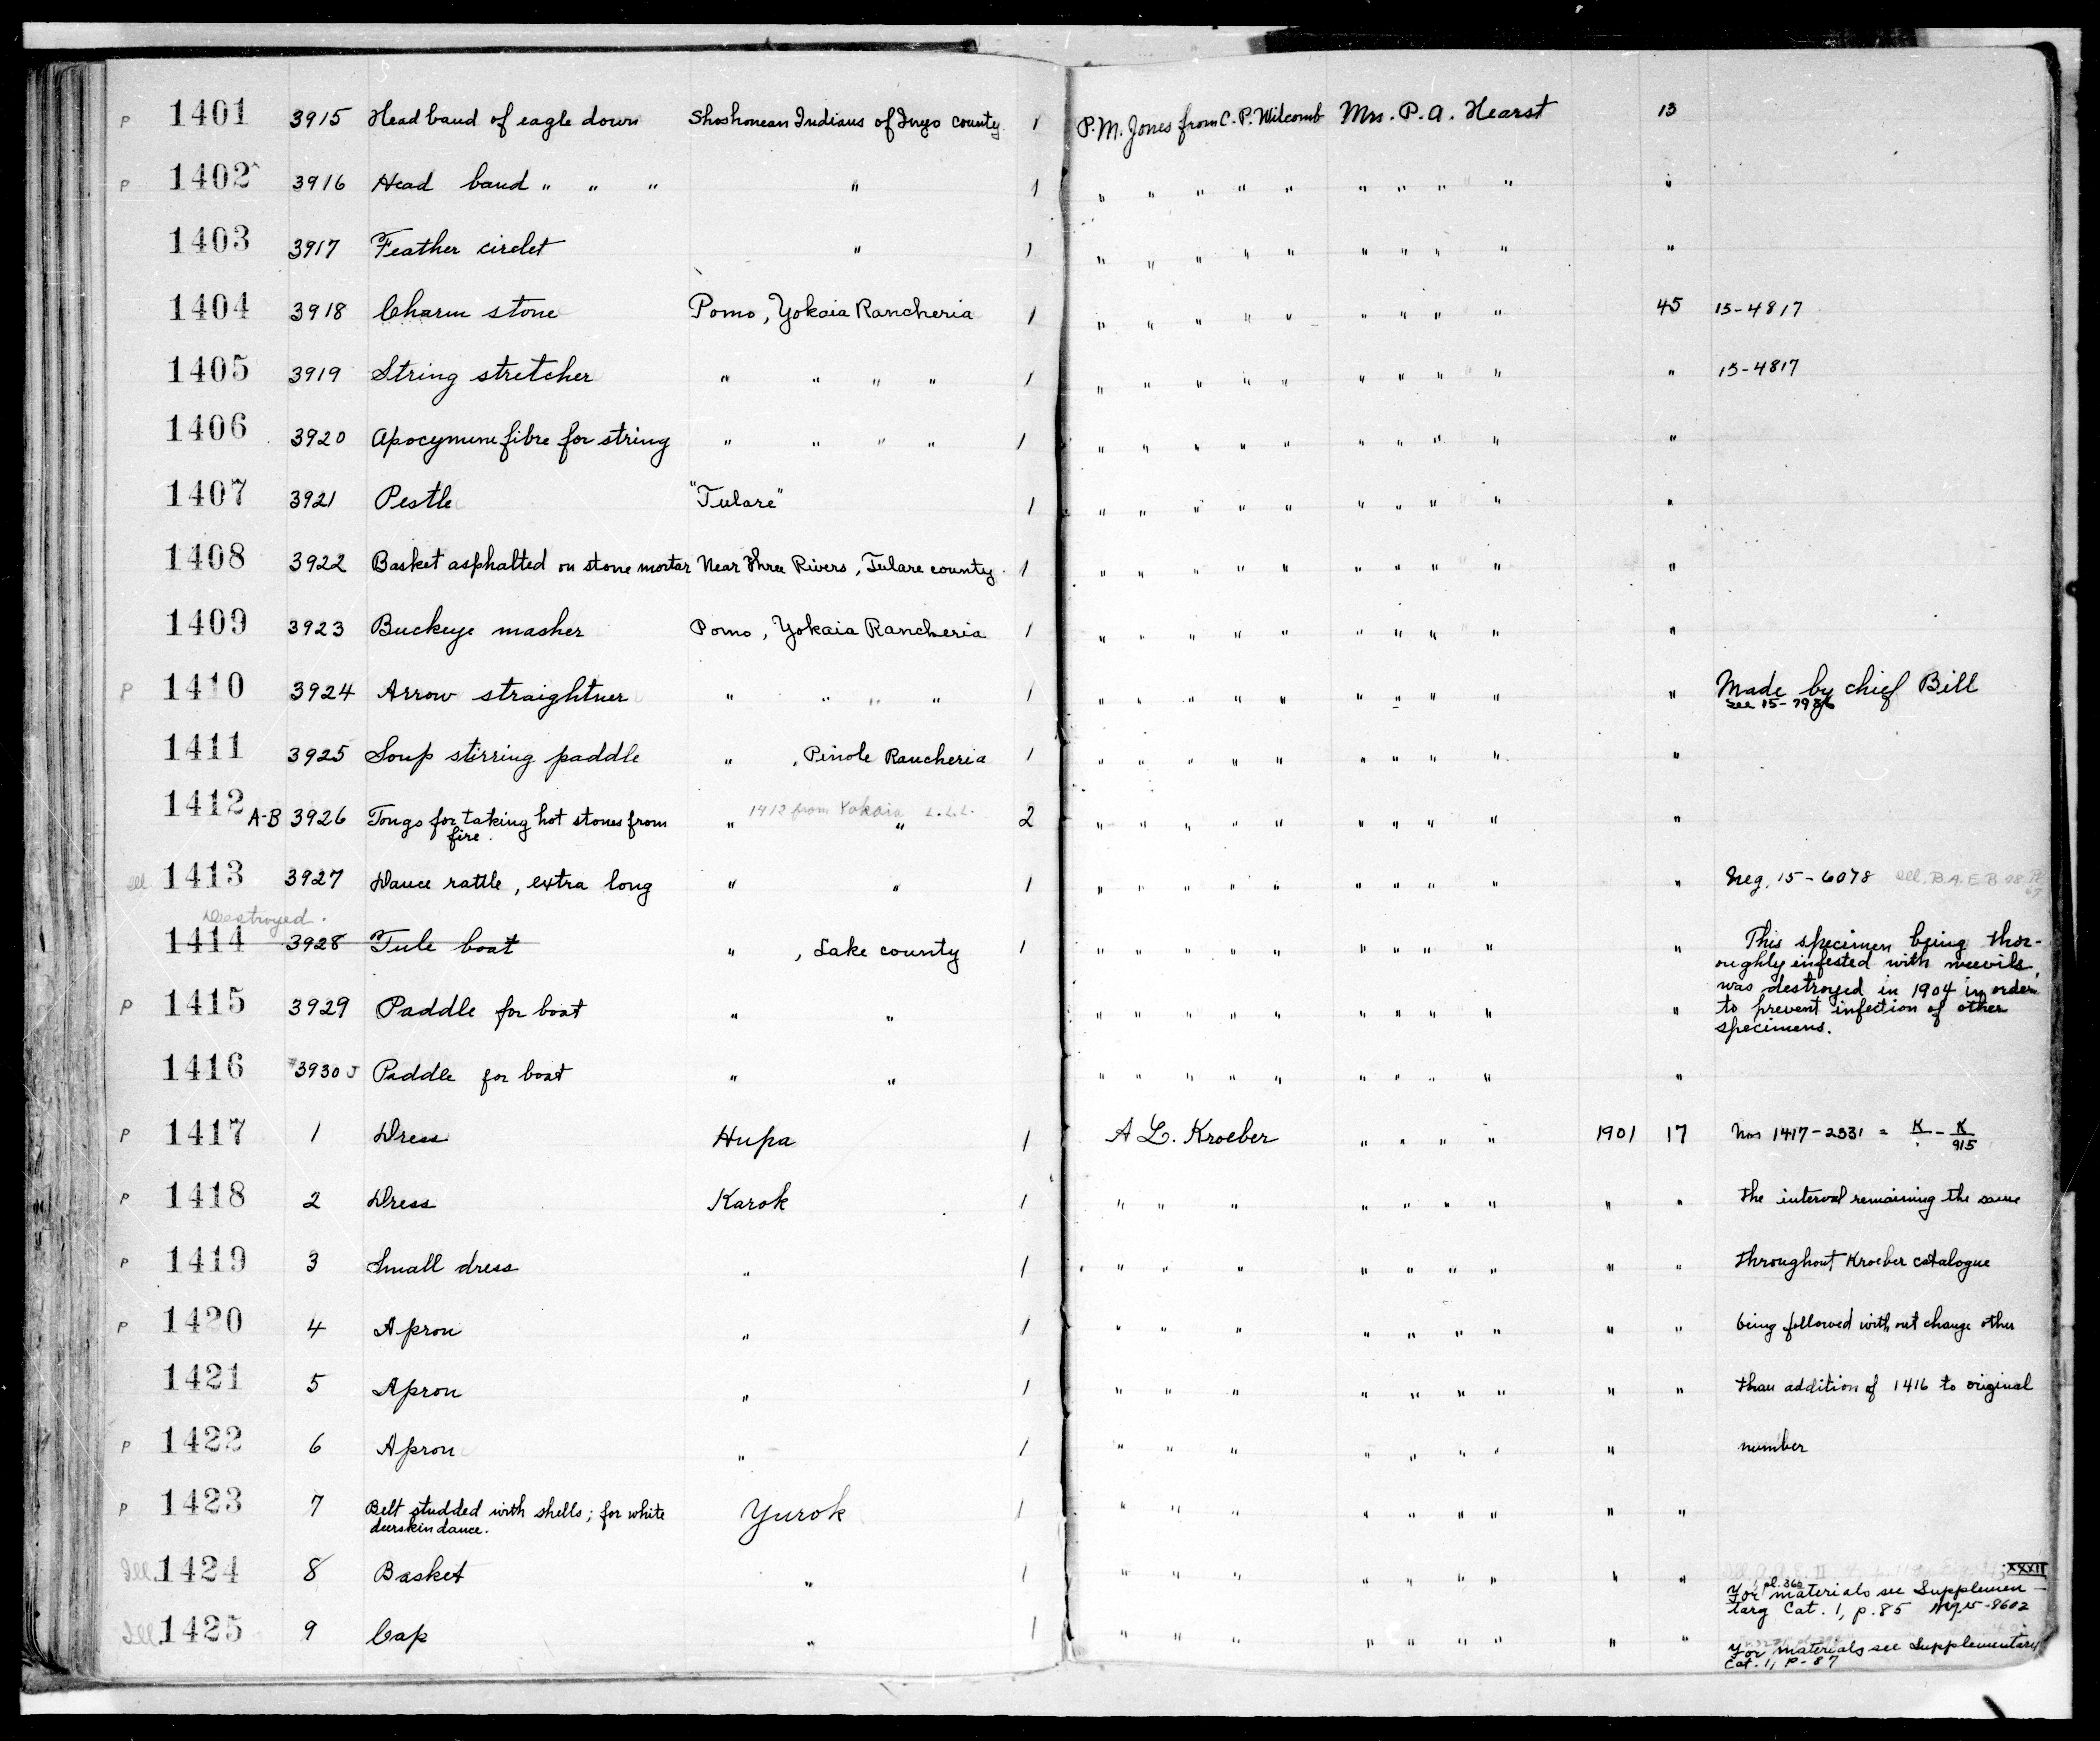 P 1401 3915 Head band of eagle down Shoshonean Indians of Inyo county 1 P. M. Jones from C. P. Wilcomb Mrs. P. A. Hearst 13
P 1402 3916 Head band " " " " 1 " " " " " " " " " "
1403 3917 Feather circlet " 1 " " " " " " " " " "
1404 3918 Charm stone Pomo, Yokaia Rancheria 1 " " " " " " " " " 45 15-4817
1405 3919 String stretcher " " " " 1 " " " " " " " " " " 15-4817
1406 3920 Apocymum fibre for string " " " " 1 " " " " " " " " " "
1407 3921 Pestle "Tulare" 1 " " " " " " " " " "
1408 3922 Basket asphalted on stone mortar Near Three Rivers, Tulare county. 1 " " " " " " " " " "
1409 3923 Buckeye masher Pomo, Yokaia Rancheria 1 " " " " " " " " " "
P 1410 3924 Arrow straightner " " " " 1 " " " " " " " " " " Made by chief Bill
see 15-7986
1411 3925 Soup stirring paddle " , Pinole Rancheria 1 " " " " " " " " " "
1412 A-B 3926 Tongs for taking hot stones from " 1412 from Yokaia L.L.L. " 2 " " " " " " " " " "
fire.
Ill. 1413 3927 Dance rattle, extra long " " 1 " " " " " " " " " " Neg. 15-6078 Ill. B.A.E. B
Destroyed.
1414 3928 Tule boat " , Lake county 1 " " " " " " " " " " This specimen being thor-
oughly infested with weevils,
was destroyed in 1904 in order
P 1415 3929 Paddle for boat " " " " " " " " " " " " to prevent infection of other
specimens.
1416 3930 Paddle for boat " " " " " " " " " " " "
P 1417 1 Dress Hupa 1 A L. Kroeber " " " " 1901 17 Nos 1417-2331 = K - K
915
P 1418 2 Dress Karok 1 " " " " " " " " " the interval remaining the same
P 1419 3 Small dress " 1 " " " " " " " " " throughout Kroeber catalogue
P 1420 4 Apron " 1 " " " " " " " " " being followed without change other
1421 5 Apron " 1 " " " " " " " " " than addition of 1416 to original
P 1422 6 Apron " 1 " " " " " " " " number
P 1423 7 Belt studded with shells; for white Yurok 1 " " " " " " " " "
deerskin dance.
Ill. 1424 8 Basket " 1 " " " " " " " " " XXXII
For materials see Supplemen-
tary Cat. 1, p. 85 Neg 15-8602
Ill. 1425 9 Cap " 1 " " " " " " " " "
For materials see Supplementary
Cat. 1, P-87